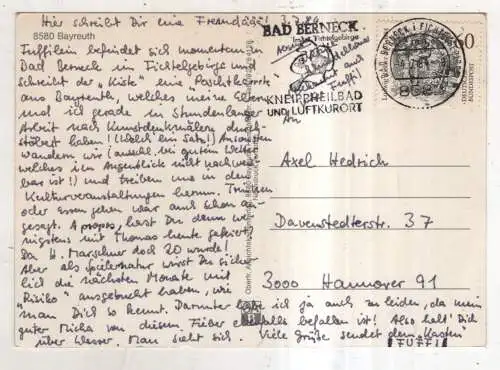 Hier schreibt Dir eine Fremdgäst! 3.7.84
8580 Bayreuth
Fuffilein befindet sich momentan in
Bad Berneck im Fichtelgebirge und
schreibt der "Kiste" eine
aus Bayreuth, welches meine Eltern
und ich gerade in stundenlanger
Arbeit nach Kunstdenkmälern durch-
stöbert haben! (Welch ein Satz!) Ansonsten
wandern wir (auch bei gutem Wetter
welches im Augenblick nicht nachweis-
bar ist!) und treiben uns in den
Kulturveranstaltungen herum. Trinken
oder Essen gehen wäre auch schon an-
gesagt. Apropos, hast Du denn we-
nigstens mit Thomas heute gefeiert
Da H. Marschner doch 20 wurde!
Aber als Spielernatur wirst Du sicher-
lich die nächsten Monate mit
"Risiko" ausgebucht haben, wie
man Dich so kennt. Darunter habe ich ja auch zu leiden, da mein
guter Micha von diesem Fieber ebenfalls befallen ist! Also halt' Dich
über Wasser. Man sieht sich. Viele Grüße sendet dem "Kasten"
FUFFI
BAD BERNECK
im Fichtelgebirge
KNEIPPHEILBAD
UND LUFTKURORT
60
DEUTSCHE BUNDESPOST
An
Axel Hedrich
Davenstedterstr. 37
3000 Hannover 91